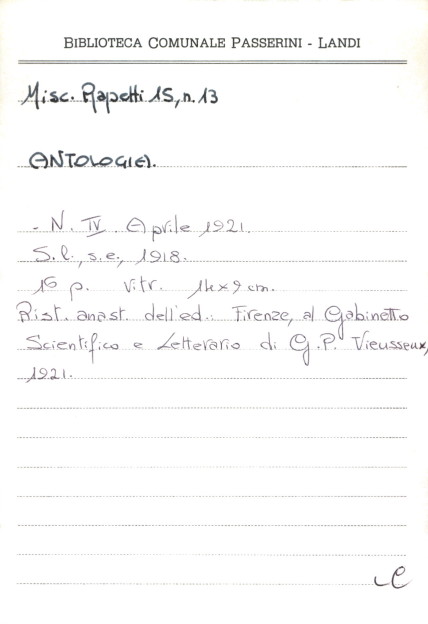 BIBLIOTECA COMUNALE PASSERINI - LANDI
Misc. Rapetti 15, n. 13
ANTOLOGIA.
- N. IV. Aprile 1921.
S.l., s.e., 1918.
16 p. vitr. 14x9 cm.
Rist. anast. dell'ed.: Firenze, al Gabinetto
Scientifico e Letterario di G.P. Vieusseux,
1921.